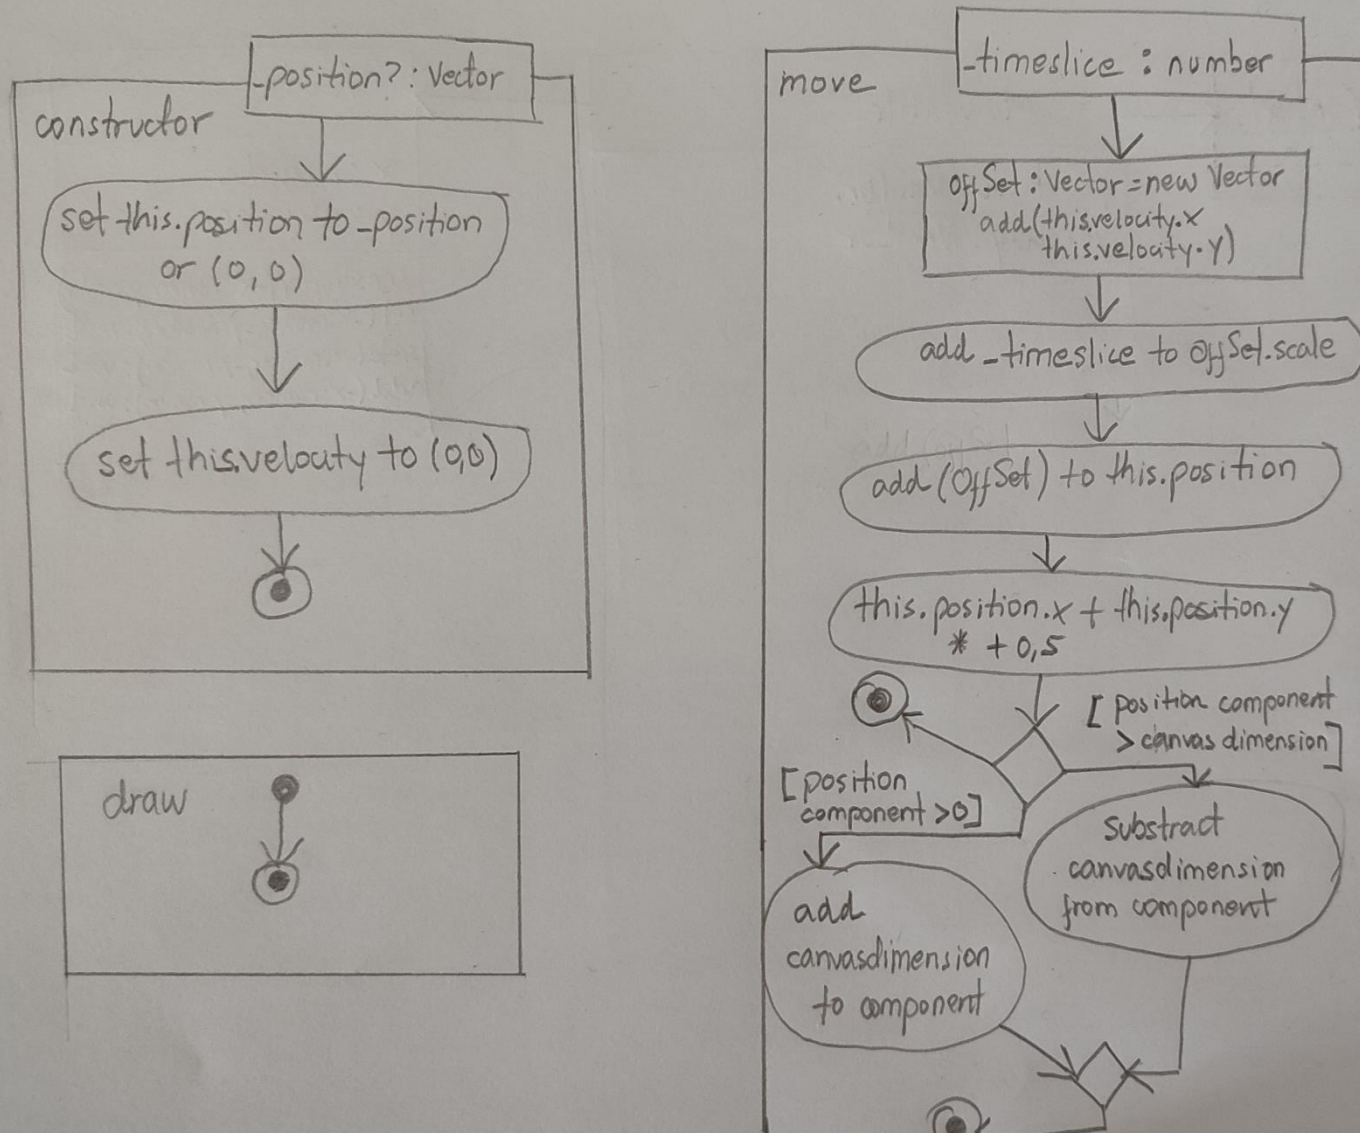 _position? : Vector
constructor
set this.position to _position
or (0,0)
set this.velocity to (0,0)
draw
_timeslice : number
move
offSet : Vector = new Vector
add(this.velocity.x
this.velocity.y)
add _timeslice to offSet.scale
add (OffSet) to this.position
this.position.x + this.position.y
* + 0,5
[ position component
> canvas dimension]
[position
component >0]
substract
canvasdimension
from component
add
canvasdimension
to component